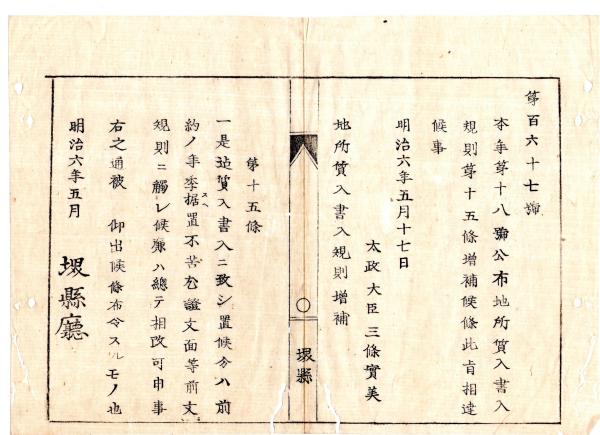 第百六十七號
本年第十八號公布地所質入書入
規則第十五條增補候條此旨相達
候事
明治六年五月十七日
太政大臣三條實美
地所質入書入規則增補
堺縣
第十五條
一是迄質入書入ニ致シ置候分ハ前
約ノ年季据置不苦尤證文面等前文
スヘ
規則ニ觸レ候廉ハ總テ相改可申事
右之通被 仰出候條布令スルモノ也
明治六年五月
堺縣廳